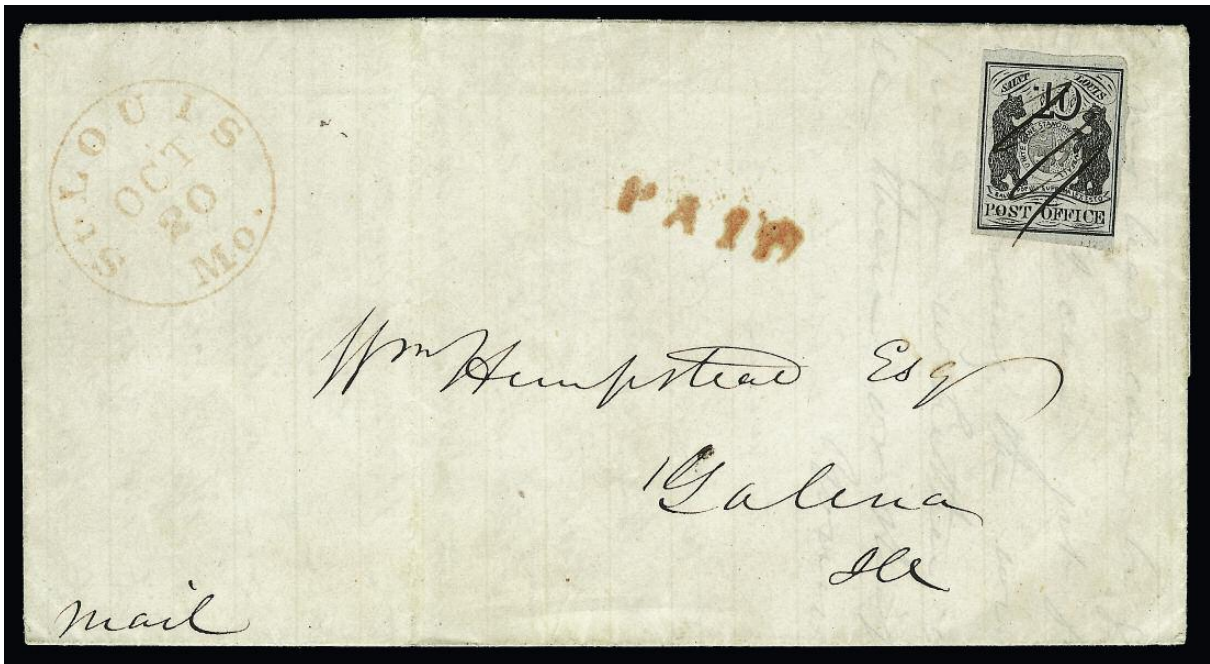 St. LOUIS Mo.
OCT
20
PAID
SAINT LOUIS
10
POST OFFICE
Wm Hempstead Esq
Galena
Ill
Mail